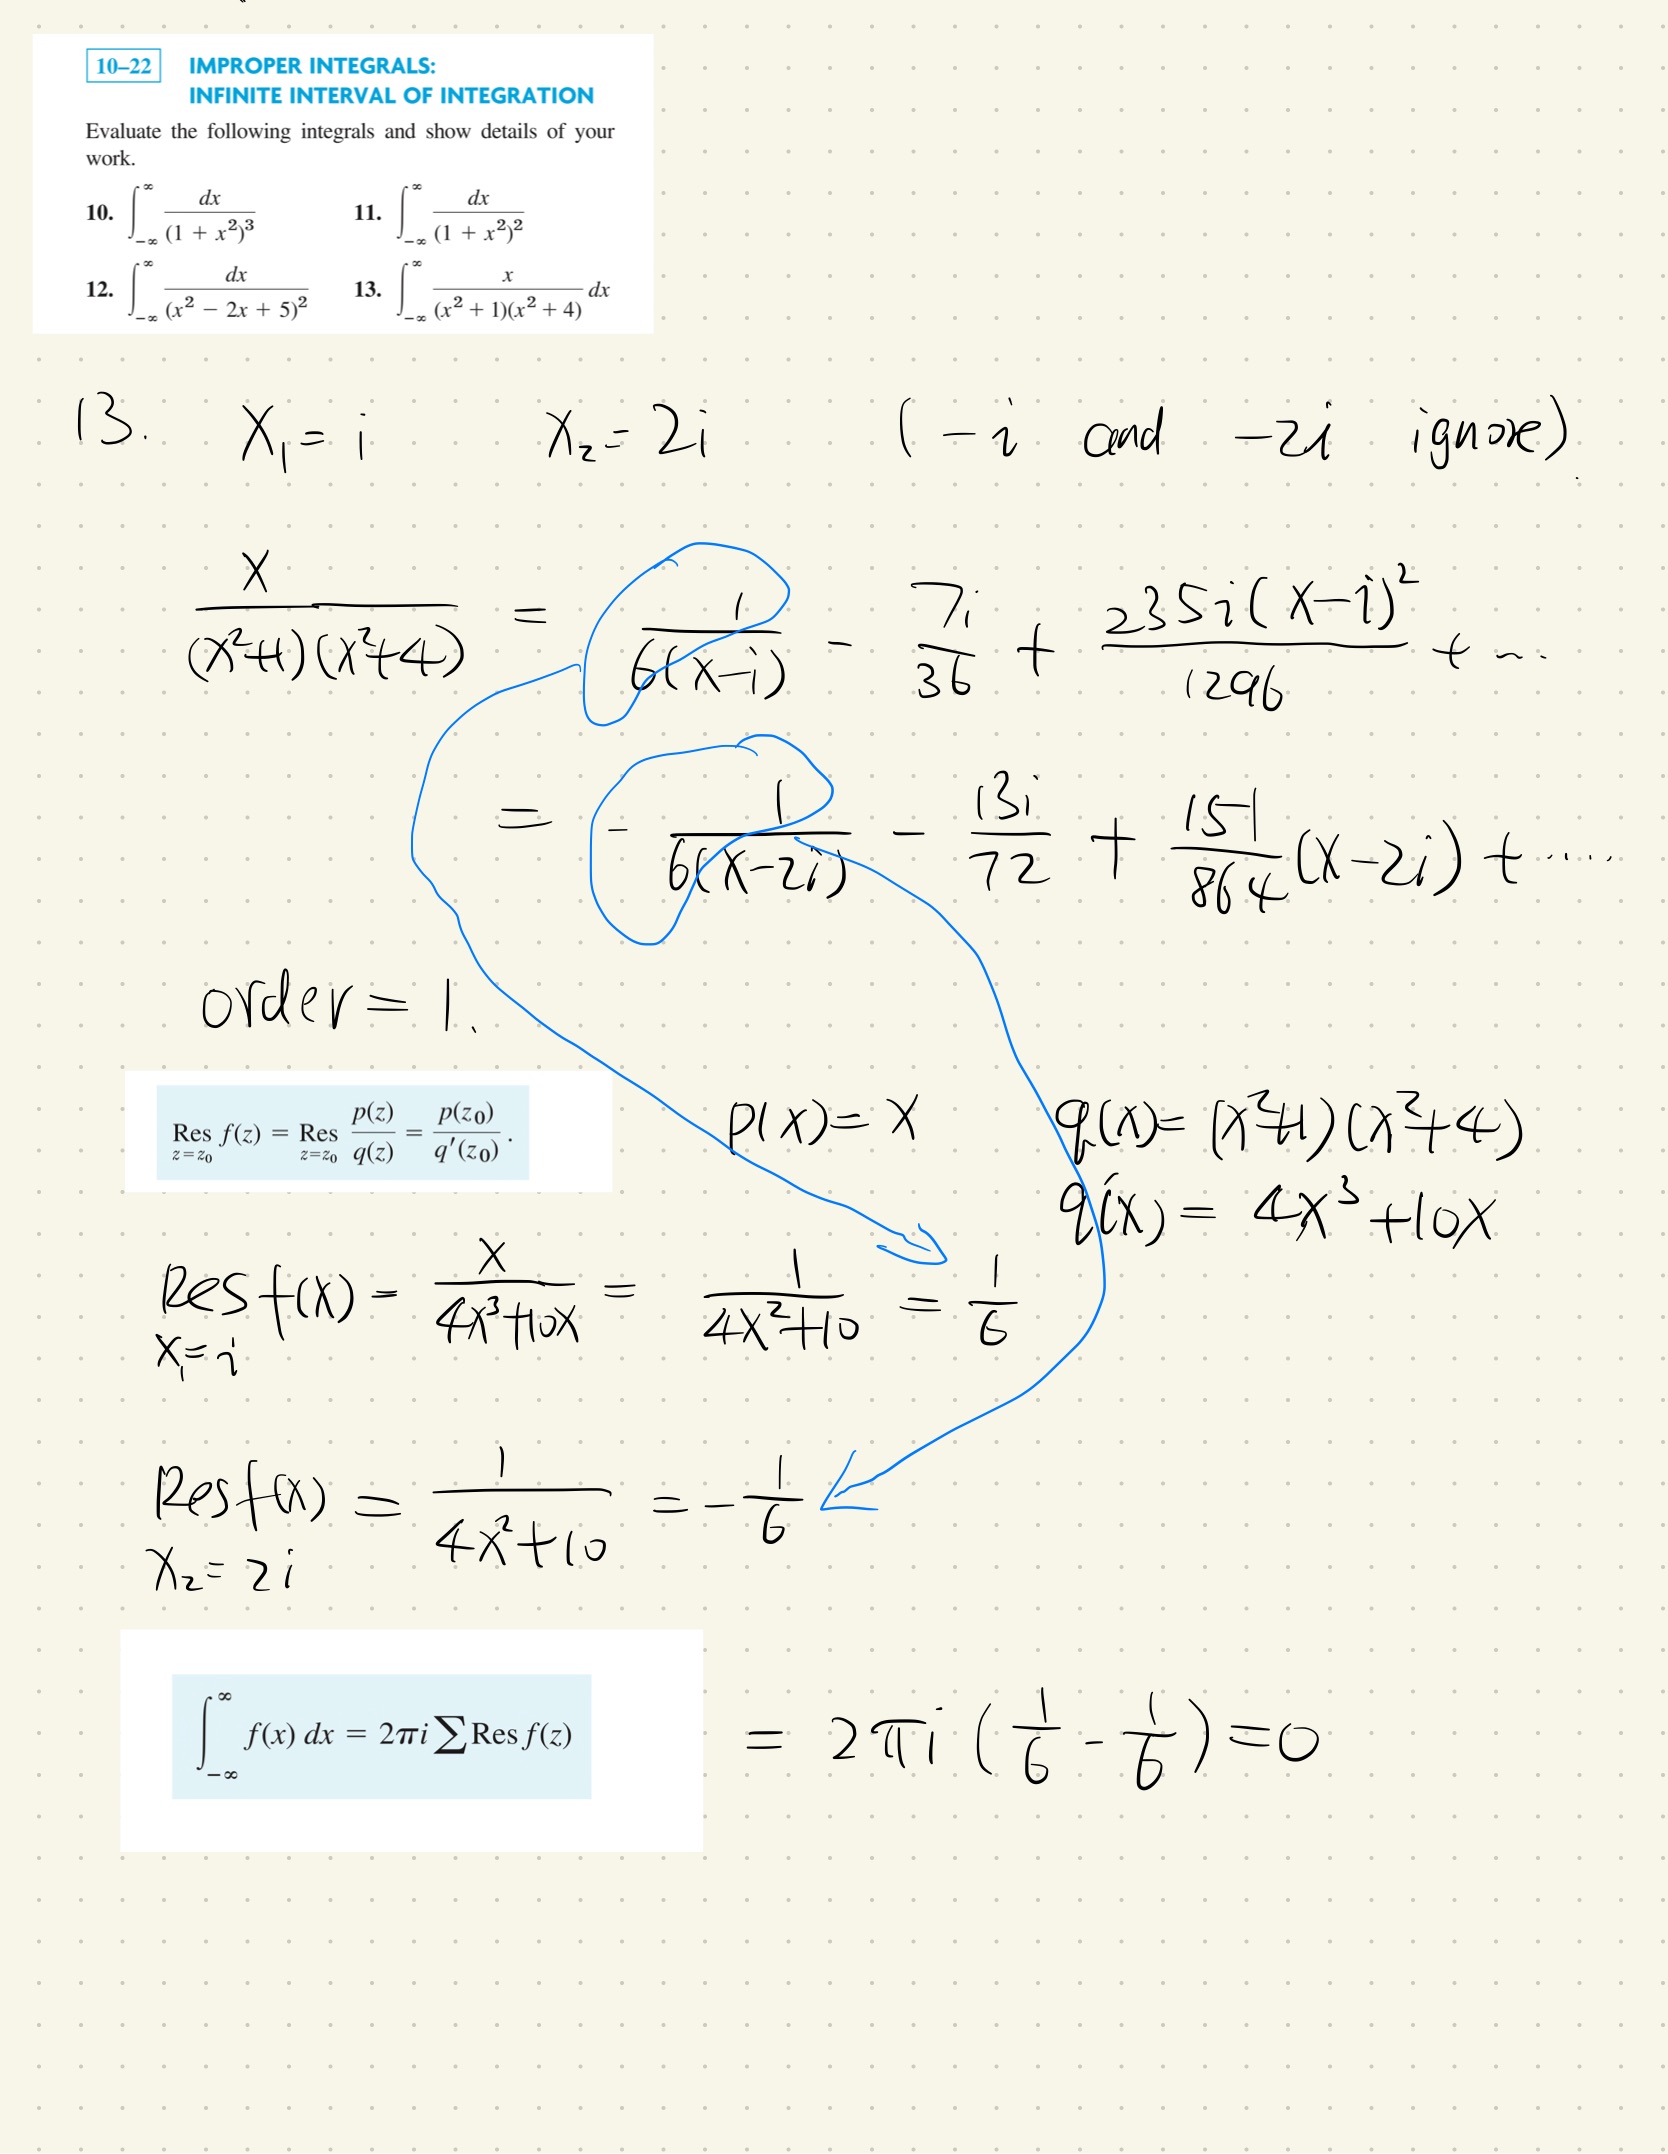 10–22 IMPROPER INTEGRALS:
INFINITE INTERVAL OF INTEGRATION
Evaluate the following integrals and show details of your
work.
10. ∫_{-∞}^{∞} dx/(1 + x²)³ 11. ∫_{-∞}^{∞} dx/(1 + x²)²
12. ∫_{-∞}^{∞} dx/(x² − 2x + 5)² 13. ∫_{-∞}^{∞} x/((x² + 1)(x² + 4)) dx
13. X₁ = i X₂ = 2i (-i and -2i ignore).
X/((X²+1)(X²+4)) = 1/(6(X-i)) - 7i/36 + 235i(X-i)²/1296 + ...
= - 1/(6(X-2i)) - 13i/72 + 151/864 (X-2i) + .....
order = 1.
Res_{z=z₀} f(z) = Res_{z=z₀} p(z)/q(z) = p(z₀)/q′(z₀). p(X) = X q(X) = (X²+1)(X²+4)
q′(X) = 4X³+10X
Res f(X) = X/(4X³+10X) = 1/(4X²+10) = 1/6
X₁=i
Res f(X) = 1/(4X²+10) = -1/6
X₂=2i
∫_{-∞}^{∞} f(x) dx = 2πi ∑ Res f(z) = 2πi (1/6 - 1/6) = 0